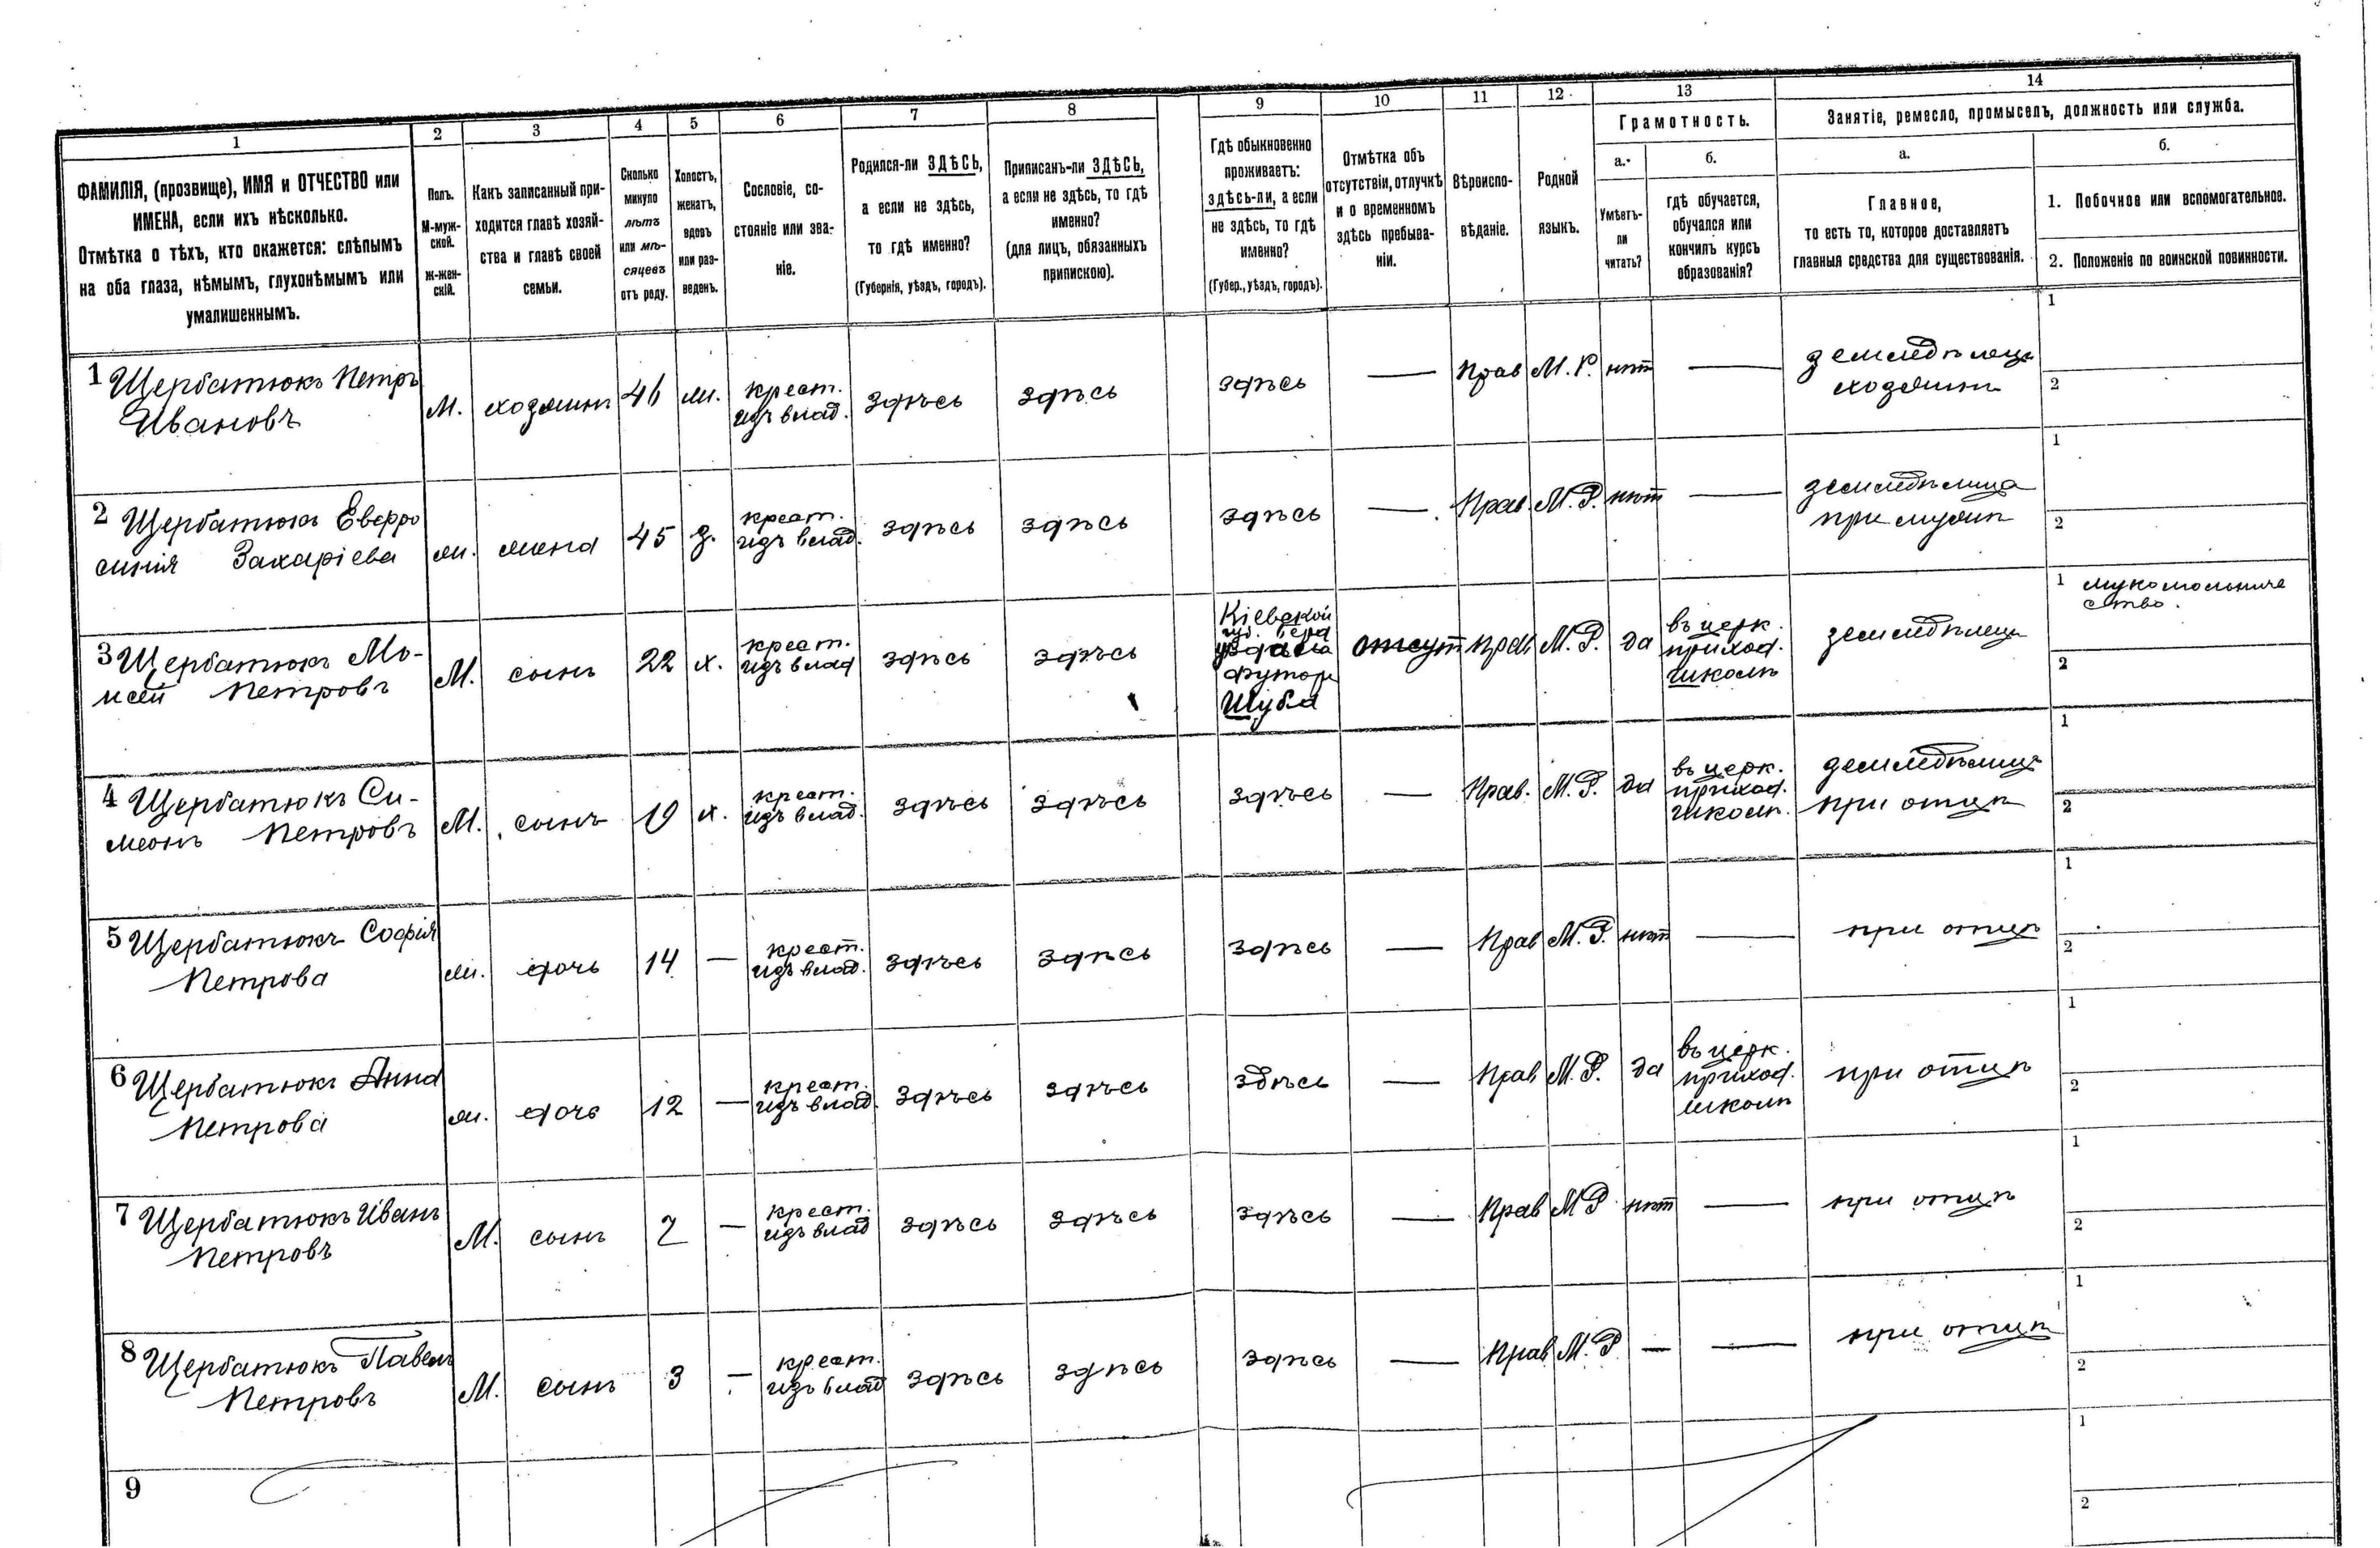 1
2
3
4
5
6
7
8
9
10
11
12
13
14
ФАМИЛІЯ, (прозвище), ИМЯ и ОТЧЕСТВО или
ИМЕНА, если ихъ нѣсколько.
Отмѣтка о тѣхъ, кто окажется: слѣпымъ
на оба глаза, нѣмымъ, глухонѣмымъ или
умалишеннымъ.
Полъ.
М-муж-
ской.
Ж-жен-
скій.
Какъ записанный при-
ходится главѣ хозяй-
ства и главѣ своей
семьи.
Сколько
минуло
лѣтъ
или мѣ-
сяцевъ
отъ роду.
Холостъ,
женатъ,
вдовъ
или раз-
веденъ.
Сословіе, со-
стояніе или зва-
ніе.
Родился-ли ЗДѢСЬ,
а если не здѣсь,
то гдѣ именно?
(Губернія, уѣздъ, городъ).
Приписанъ-ли ЗДѢСЬ,
а если не здѣсь, то гдѣ
именно?
(для лицъ, обязанныхъ
припискою).
Гдѣ обыкновенно
проживаетъ:
здѣсь-ли, а если
не здѣсь, то гдѣ
именно?
(Губер., уѣздъ, городъ).
Отмѣтка объ
отсутствіи, отлучкѣ
и о временномъ
здѣсь пребыва-
ніи.
Вѣроиспо-
вѣданіе.
Родной
языкъ.
Грамотность.
а.
Умѣетъ-
ли
читать?
б.
гдѣ обучается,
обучался или
кончилъ курсъ
образованія?
Занятіе, ремесло, промыселъ, должность или служба.
а.
Главное,
то есть то, которое доставляетъ
главныя средства для существованія.
б.
1. Побочное или вспомогательное.
2. Положеніе по воинской повинности.
1 Щербатюкъ Петръ
Ивановъ
М. хозяинъ 46 ж. крест.
изъ влад. здѣсь здѣсь здѣсь — Прав М. Р. нѣт — земледѣлецъ
хозяинъ
1
2
2 Щербатюкъ Евфро
синія Захаріева
ж. жена 45 з. крест.
изъ влад. здѣсь здѣсь здѣсь — Прав. М. Р. нѣт — земледѣлица
при мужѣ
1
2
3 Щербатюкъ Мо-
исей Петровъ
М. сынъ 22 х. крест.
изъ влад здѣсь здѣсь
Кіевской
губ.
уѣзда
Футоръ
Шуба
отсут прав М. Р. да
въ церк.
приход.
школѣ
земледѣлецъ
1 мукомольниче
ство.
2
4 Щербатюкъ Си-
меонъ Петровъ
М. сынъ 19 х. крест.
изъ влад. здѣсь здѣсь здѣсь — Прав. М. Р. да
въ церк.
приход.
школѣ.
земледѣлецъ
при отцѣ
1
2
5 Щербатюкъ Софія
Петрова
ж. дочь 14 — крест.
изъ влад. здѣсь здѣсь здѣсь — Прав М. Р. нѣт — при отцѣ
1
2
6 Щербатюкъ Анна
Петрова
ж. дочь 12 — крест.
изъ влад. здѣсь здѣсь здѣсь — Прав М. Р. да
въ церк.
приход.
школѣ
при отцѣ
1
2
7 Щербатюкъ Иванъ
Петровъ
М. сынъ 7 — крест.
изъ влад здѣсь здѣсь здѣсь — Прав М Р нѣт — при отцѣ
1
2
8 Щербатюкъ Павелъ
Петровъ
М. сынъ 3 — крест.
изъ влад здѣсь здѣсь здѣсь — Прав М. Р — — при отцѣ
1
2
9
1
2